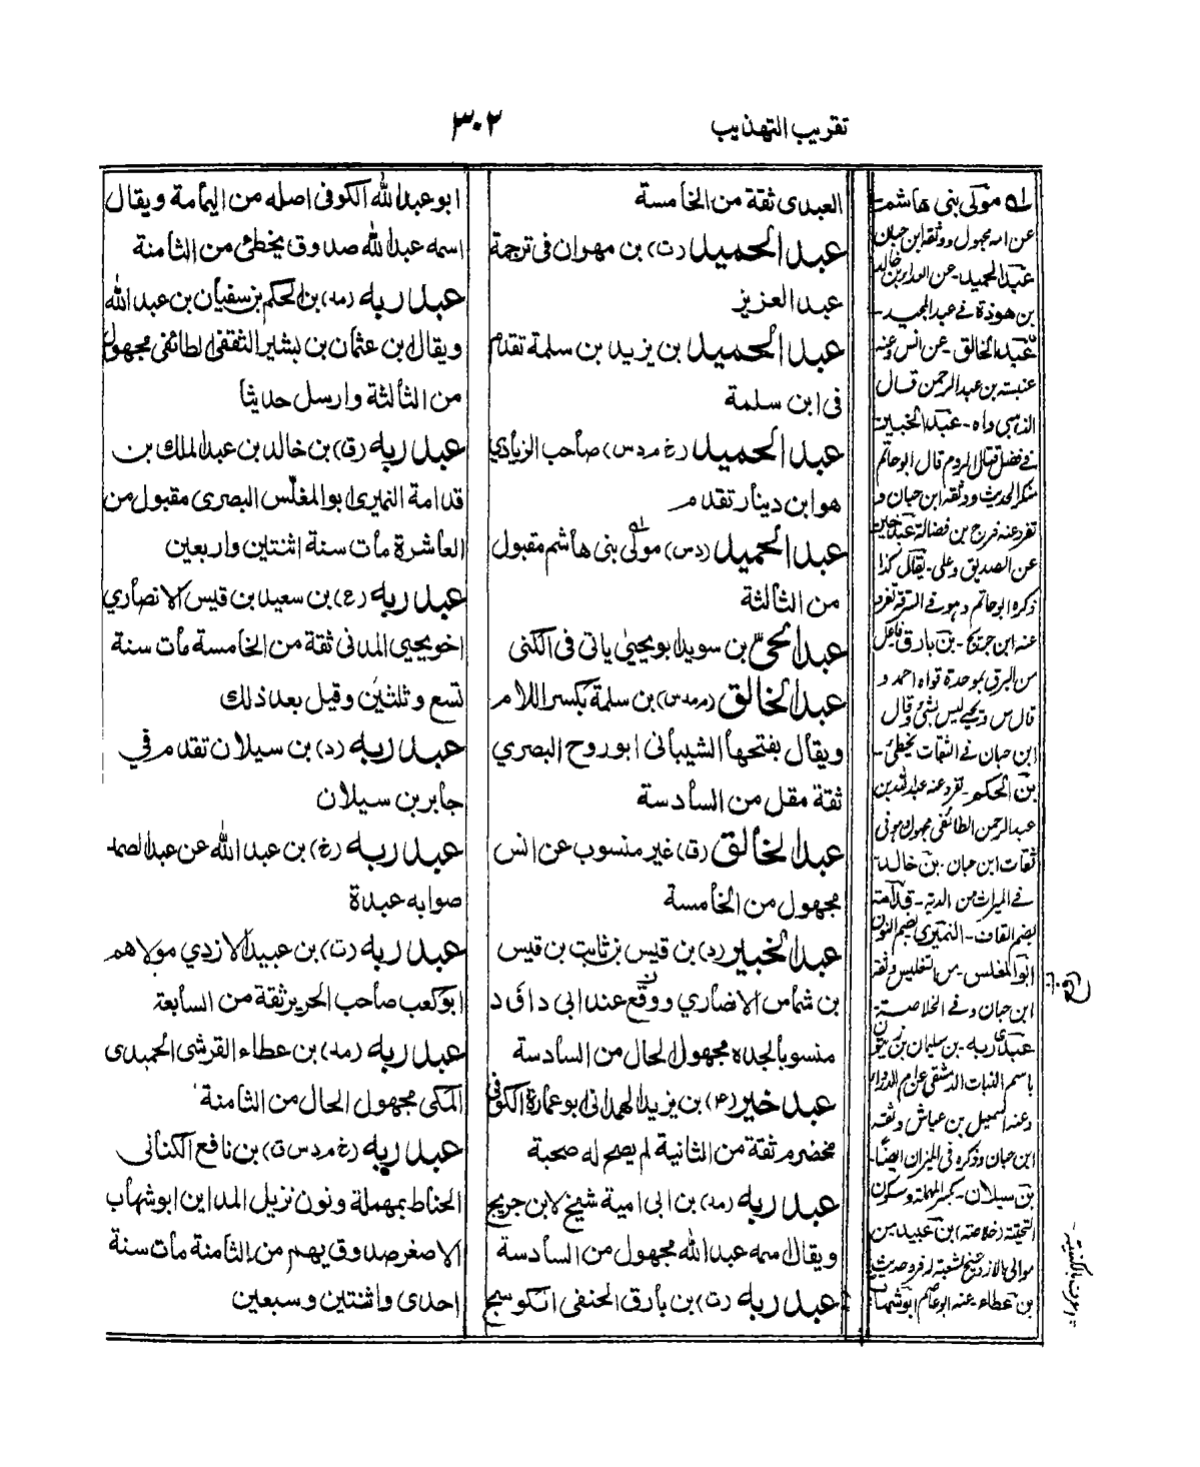 تقريب التهذيب
٣٠٢
العبدى ثقة من الخامسة
عبد الحميد (ت) بن مهران فى ترجمة
عبد العزيز
عبد الحميد بن يزيد بن سلمة تقدم
فى ابن سلمة
عبد الحميد (خ م د س) صاحب الزيادي
هو ابن دينار تقدم
عبد الحميد (د س) مولى بنى هاشم مقبول
من الثالثة
عبد الحىّ بن سويد ابو يحيىٰ ياتى فى الكنى
عبد الخالق (م مد س) بن سلمة بكسر اللام
ويقال بفتحها الشيبانى ابو روح البصري
ثقة مقل من السادسة
عبد الخالق (ق) غير منسوب عن انس
مجهول من الخامسة
عبد الخبير (د) بن قيس بن ثابت بن قيس
بن شماس الانصاري ووقع عند ابى داؤد
منسوبا لجده مجهول الحال من السادسة
عبد خير (٤) بن يزيد الهمدانى ابو عمارة الكوفى
مخضرم ثقة من الثانية لم يصح له صحبة
عبد ربه (مد) بن ابى امية شيخ لابن جريج
ويقال اسمه عبد الله مجهول من السادسة
عبد ربه (ت) بن بارق الحنفى الكوسج
ابو عبد الله الكوفى اصله من اليمامة ويقال
اسمه عبد الله صدوق يخطئ من الثامنة
عبد ربه (مد) بن الحكم بن سفيان بن عبد الله
ويقال ابن عثمان بن بشير الثقفى الطائفى مجهول
من الثالثة وارسل حديثا
عبد ربه (ق) بن خالد بن عبد الملك بن
قدامة النميرى ابو المغلّس البصرى مقبول من
العاشرة مات سنة اثنتين واربعين
عبد ربه (ع) بن سعيد بن قيس الانصاري
اخو يحيى المدنى ثقة من الخامسة مات سنة
تسع وثلثين وقيل بعد ذلك
عبد ربه (د) بن سيلان تقدم في
جابر بن سيلان
عبد ربه (خ) بن عبد الله عن عبد الصمد
صوابه عبدة
عبد ربه (ت) بن عبيد الازدي مولاهم
ابو كعب صاحب الحرير ثقة من السابعة
عبد ربه (مد) بن عطاء القرشى الحميدى
المكى مجهول الحال من الثامنة
عبد ربه (خ م د س ق) بن نافع الكنانى
الحناط بمهملة ونون نزيل المداين ابو شهاب
الاصغر صدوق يهم من الثامنة مات سنة
احدى واثنتين وسبعين
له مولى بنى هاشم
عن امه مجهول ووثقه ابن حبان
عبد الحميد - عن العداء بن خالد
بن هوذة فے عبد المجيد -
عبد الخالق - عن انس وعنه
عنبسة بن عبد الرحمن قال
الذهبى واه - عبد الخبير
فے فضل قتال الروم قال ابو حاتم
منكر الحديث ووثقه ابن حبان و
تفرد عنه فرج بن فضالة عبد خير
عن الصديق وعلى - يقال كذا
ذكره ابو حاتم
عنه ابن جريج - بن بارق
قال س و يحيے ليس بشئ وقال
ابن حبان فے الثقات يخطئ -
بن الحكم - تفرد عنه عبد الله بن
عبد الرحمن الطائفى مجهول هو فى
ثقات ابن حبان - بن خالد
فے الميراث من الدية - قدامة
بضم القاف - النميرى بضم النون
ابو المغلس - من التغليس وثقه
ابن حبان وفے الخلاصة
عبد ربه - بن سليمان بن زيتون
باسم النبات الدمشقى عن ام الدرداء
وعنه اسمعيل بن عياش وثقه
ابن حبان وذكره فى الميزان ايضا -
بن سيلان - بكسر المهملة وسكون
التحتية (خلاصه) ابن عبيد من
موالى الازد شيخ لشعبة له فرد حديث
بن عطاء - عنه ابو عاصم ابو شهاب